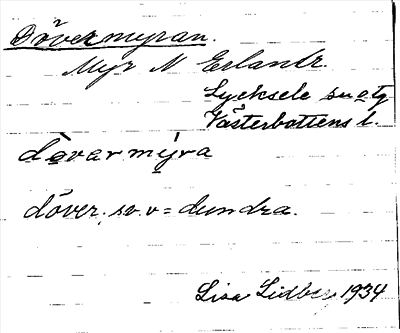 Dövermyran.
Myr N Erlantr.
Lycksele sn otg
Västerbottens l.
dövarmýra
döver. sv. v = dundra.
Lisa Lidberg 1934